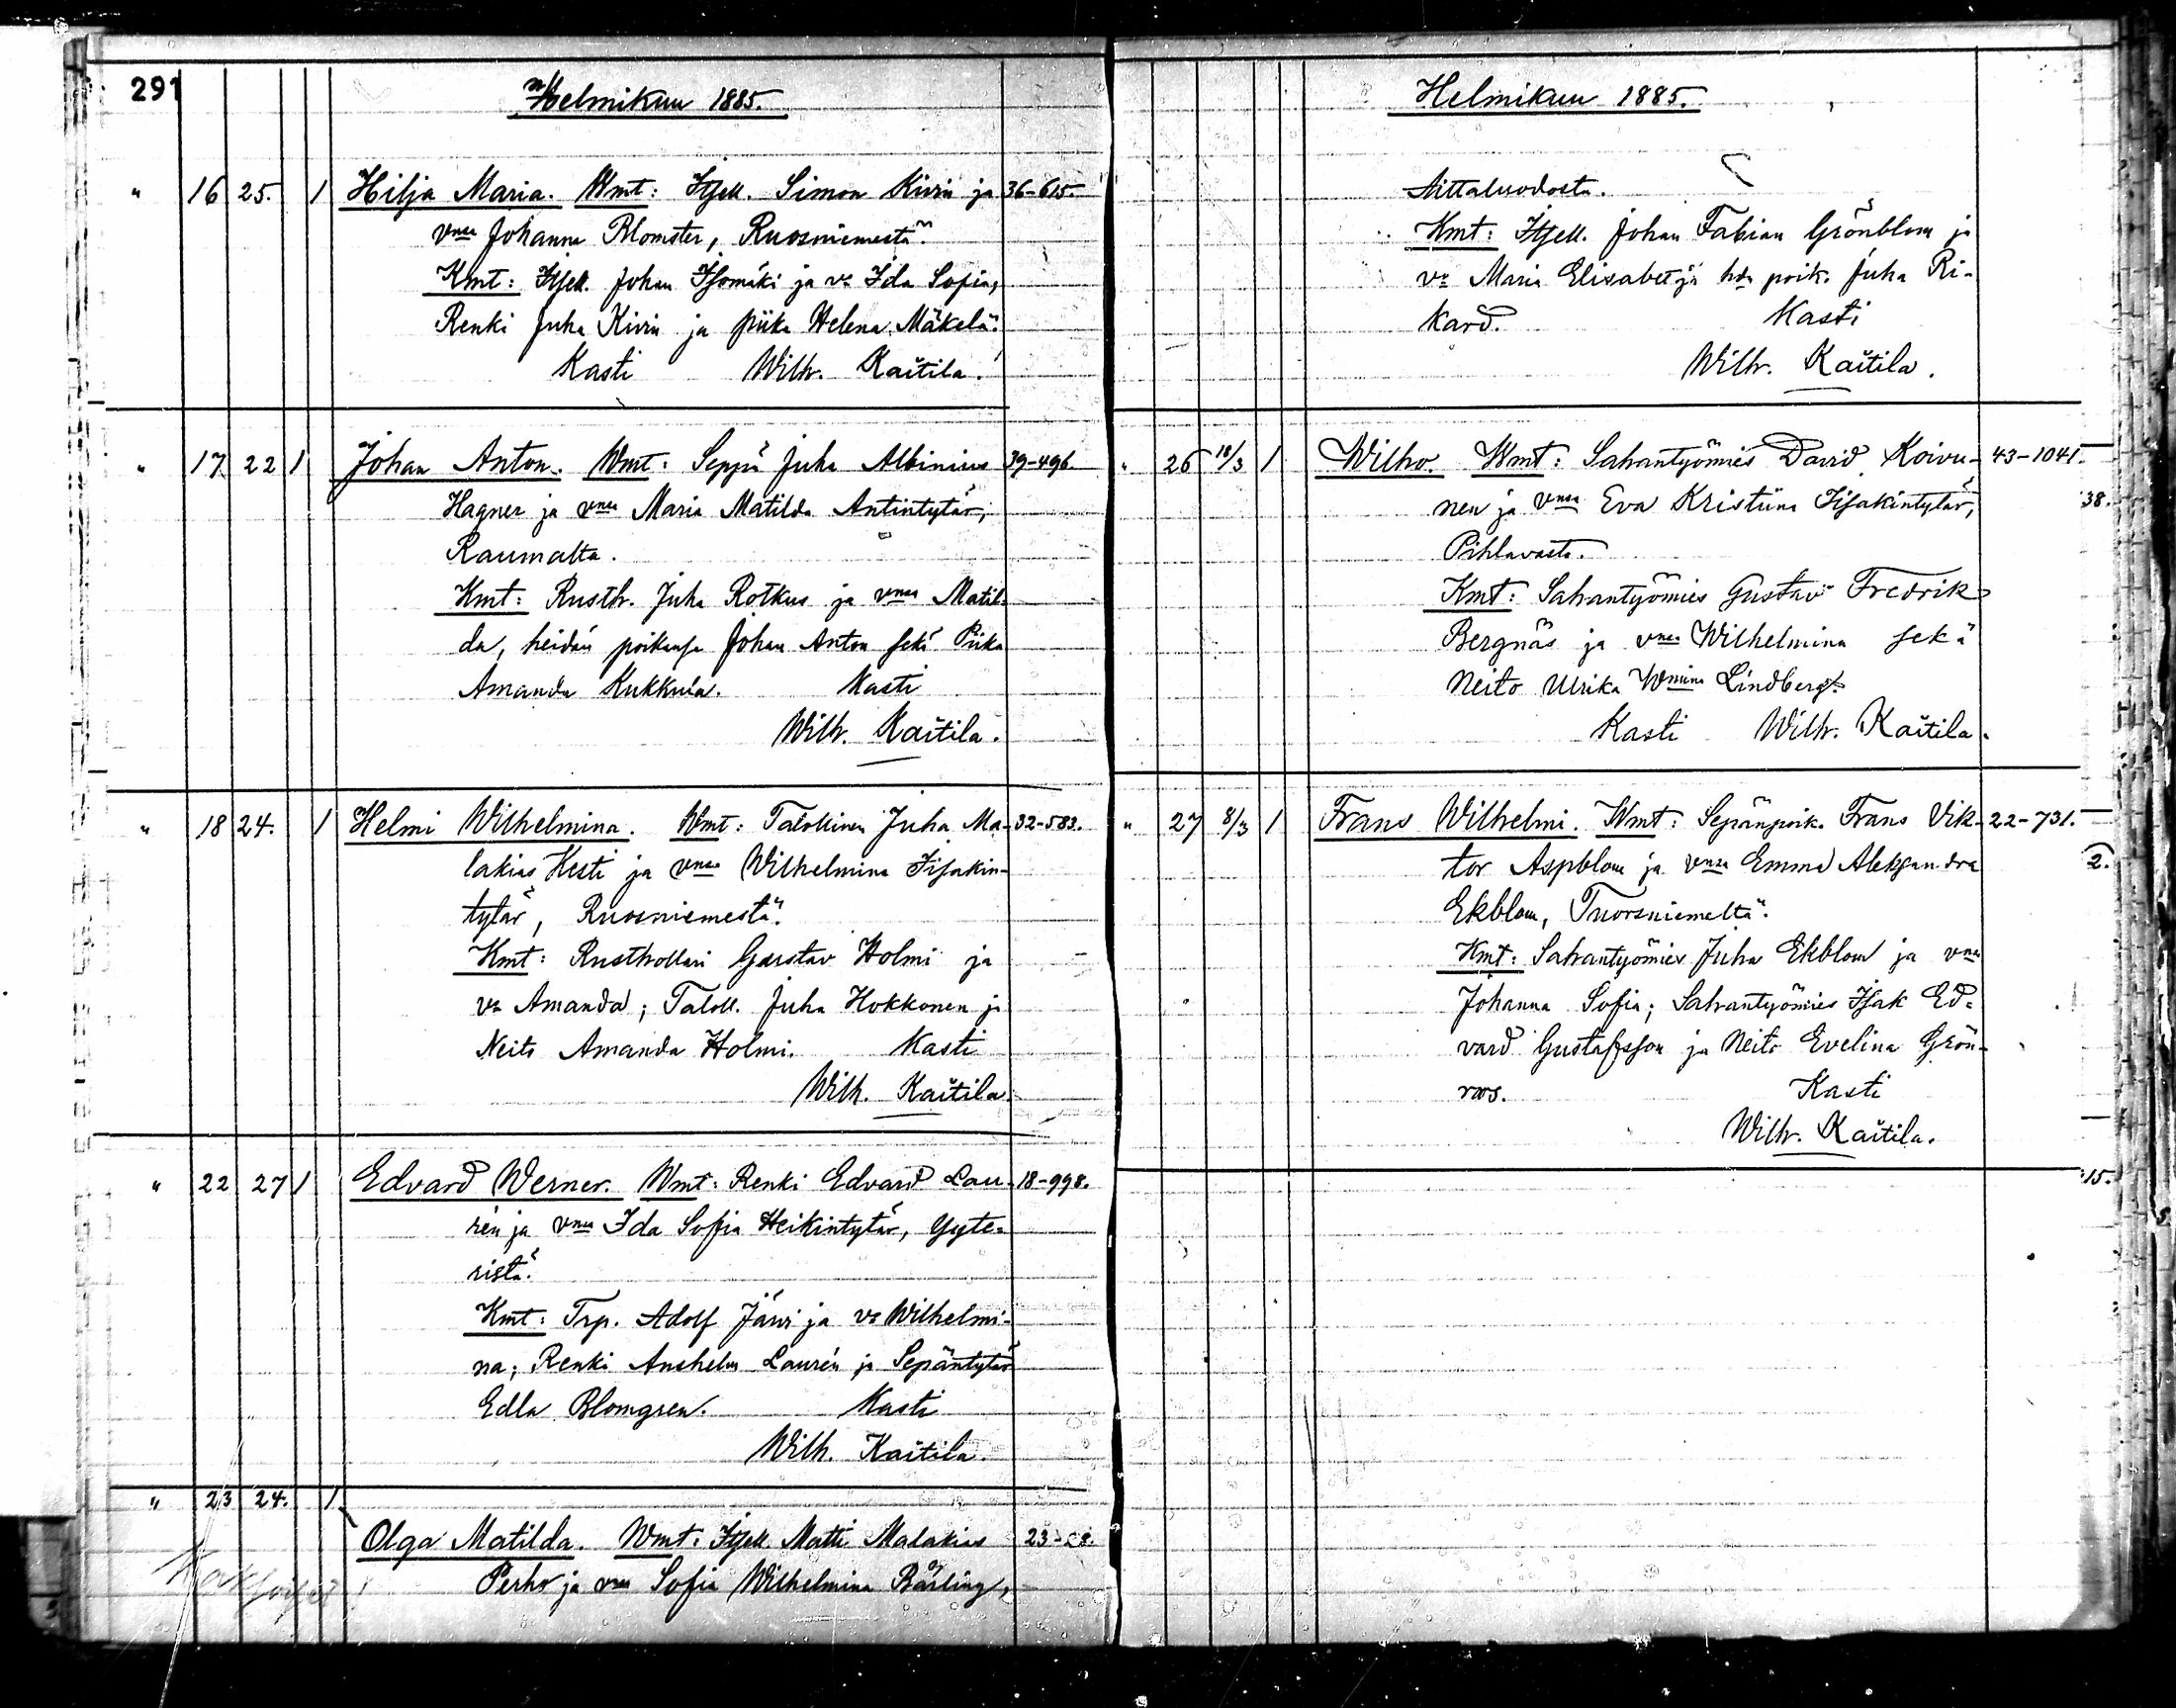 291
Helmikuu 1885.
" 16 25. 1 Hilja Maria. Wmt: Itsell. Simon Kivin ja 36-615.
vnsa Johanna Blomster, Ruosniemestä.
Kmt: Itsell. Johan Isomäki ja va Ida Sofia,
Renki Juha Kivin ja piika Helena Mäkelä.
Kasti Wilh. Kaitila.
" 17 22 1 Johan Anton. Wmt: Seppä Juha Albinius 39-496
Hagner ja vnsa Maria Matilda Antintytär,
Raumalta.
Kmt: Rusth. Juha Rotkus ja vnsa Matil-
da, heidän poikansa Johan Anton sekä Piika
Amanda Kukkula. Kasti
Wilh. Kaitila.
" 18 24. 1 Helmi Wilhelmina. Wmt: Talollinen Juha Ma- 32-583.
lakias Kesti ja vnsa Wilhelmina Iisakin-
tytär, Ruosniemestä.
Kmt: Rusthollari Gustav Holmi ja
va Amanda; Taloll. Juha Hokkonen ja
Neito Amanda Holmi. Kasti
Wilh. Kaitila.
" 22 27 1 Edvard Werner. Wmt: Renki Edvard Lau- 18-998.
rén ja vnsa Ida Sofia Heikintytär, Yyte-
ristä.
Kmt: Trp. Adolf Järvi ja va Wilhelmi-
na; Renki Anshelm Laurén ja Sepäntytär
Edla Blomgren. Kasti
Wilh. Kaitila.
" 23 24. 1
Olga Matilda. Wmt: Itsell. Matti Malakias 23-
Perho ja vnsa Sofia Wilhelmina Bärling,
Helmikuu 1885.
Aittaluodosta.
Kmt: Itsell. Johan Fabian Grönblom ja
va Maria Elisabet ja hda poik. Juha Ri-
kard. Kasti
Wilh. Kaitila.
" 26 18/3 1 Wilho. Wmt: Sahantyömies David Koivu- 43-1041.
nen ja vnsa Eva Kristiina Iisakintytär, 38.
Pihlavasta.
Kmt: Sahantyömies Gustav Fredrik
Bergnäs ja vnsa Wilhelmina sekä
Neito Ulrika Wmina Lindberg.
Kasti Wilh. Kaitila.
" 27 8/3 1 Frans Wilhelmi. Wmt: Sepänpoik. Frans Vik- 22-731.
tor Aspblom ja vnsa Emma Aleksandra 2.
Ekblom, Tuorsniemeltä.
Kmt: Sahantyömies Juha Ekblom ja vnsa
Johanna Sofia; Sahantyömies Isak Ed-
vard Gustafsson ja Neito Evelina Grön-
roos. Kasti
Wilh. Kaitila.
15.